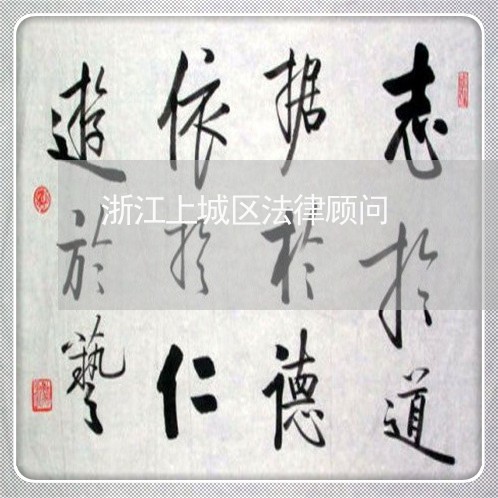 志於道
据於德
依於仁
遊於藝
浙江上城区法律顾问